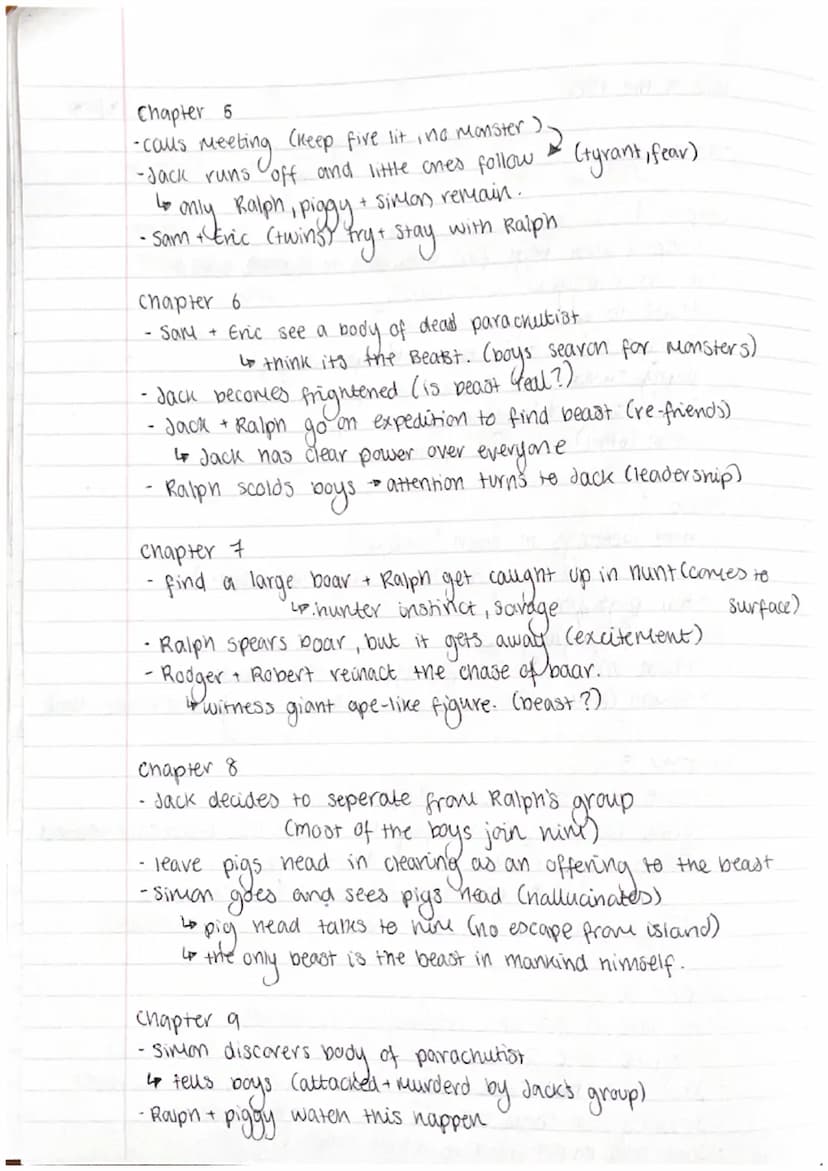 Chapter 5
- calls Meeting (keep fire lit, no monster)
- Jack runs off and little ones follow (tyrant, fear)
↳ only Ralph, piggy + simon remain.
- Sam + Eric (twins) try + stay with Ralph
Chapter 6
- Sam + Eric see a body of dead parachutist
↳ think its the Beast. (boys search for monsters)
- Jack becomes frightened (is beast real?)
- Jack + Ralph go on expedition to find beast (re-friends)
↳ Jack has clear power over everyone
- Ralph scolds boys → attention turns to Jack (leadership)
Chapter 7
- find a large boar + Ralph get caught up in hunt (comes to
↳ hunter instinct, savage surface)
- Ralph spears boar, but it gets away (excitement)
- Rodger + Robert reinact the chase of boar.
↳ witness giant ape-like figure. (beast?)
Chapter 8
- Jack decides to seperate from Ralph's group
(most of the boys join him)
- leave pigs head in clearing as an offering to the beast
- Simon goes and sees pigs head (hallucinates)
↳ pig head talks to him (no escape from island)
↳ the only beast is the beast in mankind himself.
Chapter 9
- Simon discovers body of parachutist
↳ tells boys (attacked + murderd by Jack's group)
- Ralph + piggy watch this happen